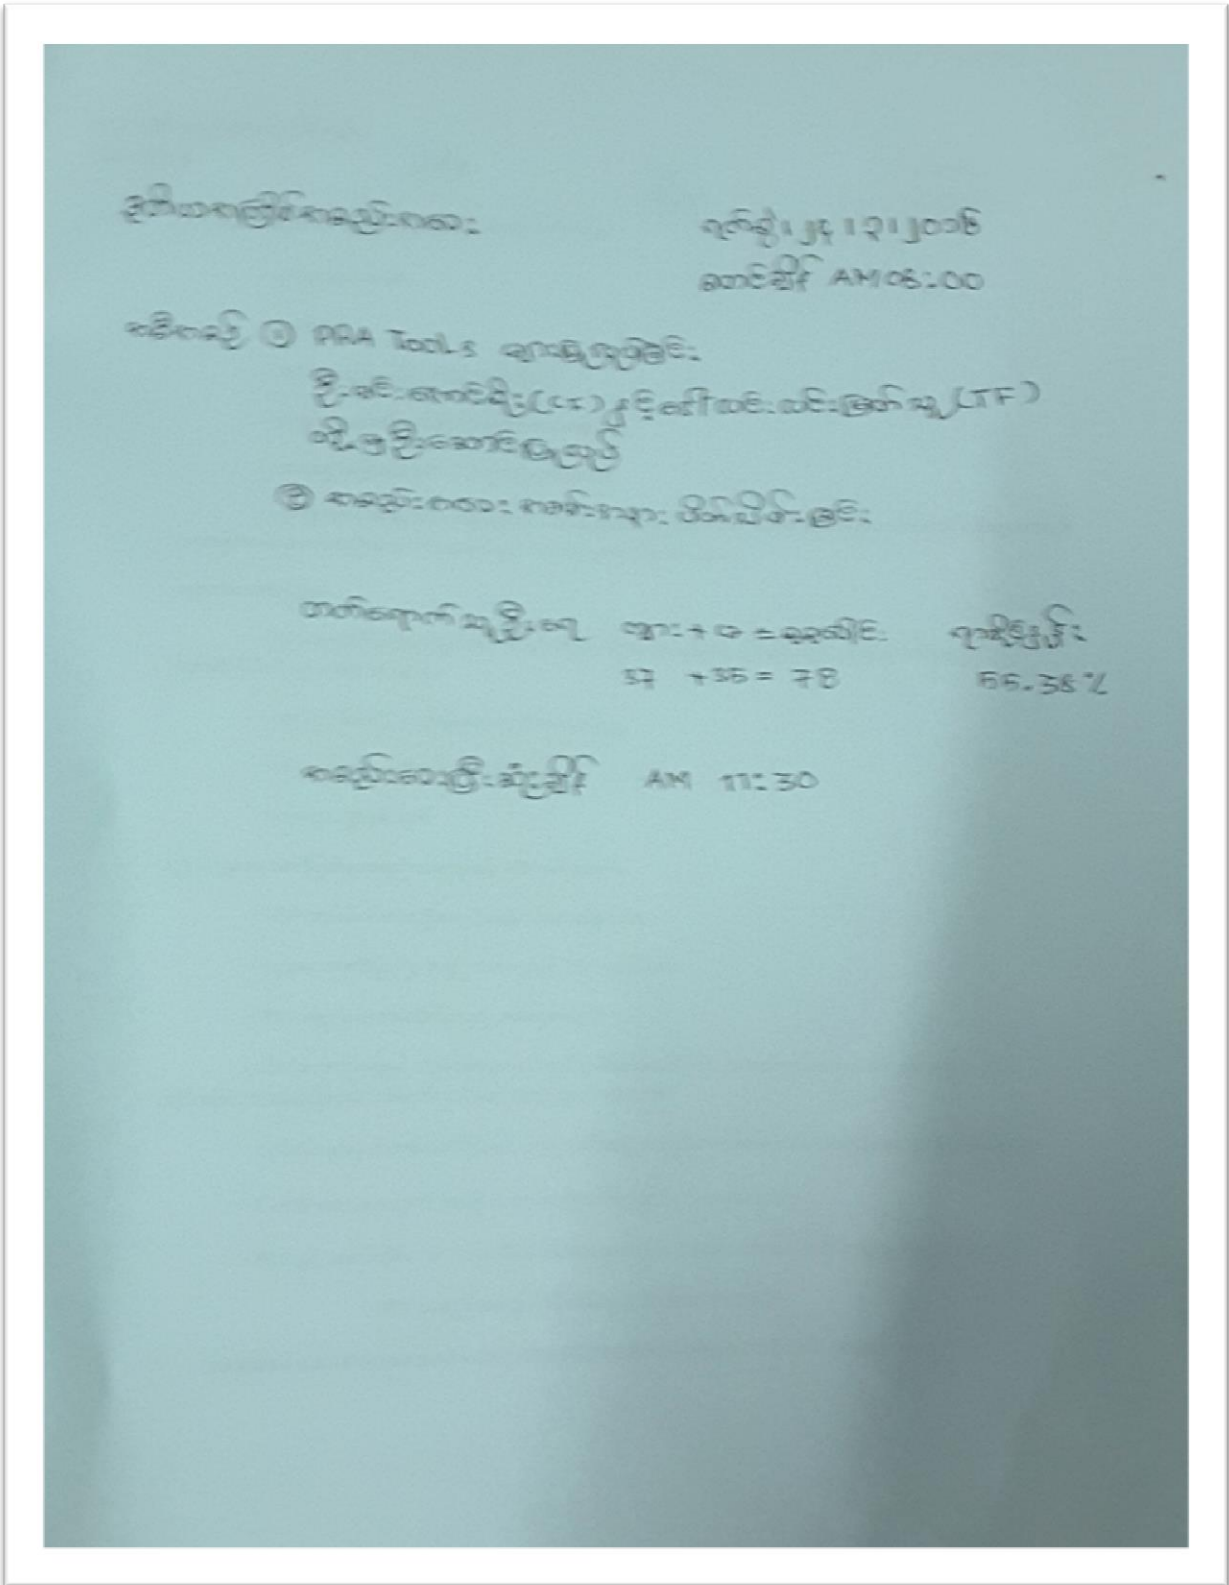 ဒုတိယအကြိမ်အစည်းအဝေး
ရက်စွဲ၊ ၂၄ ၊ ၃ ၊ ၂၀၁၆
အချိန် AM 08:00
အစီအစဉ် ① PRA Tools များပြုလုပ်ခြင်း
ဦးဝင်းအောင်စိုး (CF) နှင့် ဒေါ်ဝင်းဝင်းမြတ်သူ (TF)
တို့မှဦးဆောင်ပြုလုပ်
② အစည်းအဝေး အခမ်းအနား ပိတ်သိမ်းခြင်း
တက်ရောက်သူဦးရေ ကျား + မ = စုစုပေါင်း ရာခိုင်နှုန်း
37 +35 = 78 55.38%
အစည်းဝေးပြီးဆုံးချိန် AM 11:30